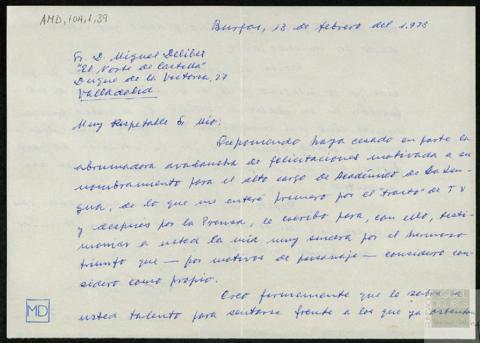 AMD, 104, 1, 39
Burgos, 13 de febrero del 1.973
Sr. D. Miguel Delibes
"El Norte de Castilla"
Duque de la Victoria, 27
Valladolid
Muy Respetable Sr. Mío:
Suponiendo haya cesado en parte la
abrumadora avalancha de felicitaciones motivada a su
nombramiento para el alto cargo de Académico de la Len-
gua, de lo que me enteré primero por el "trasto" de TV
y después por la Prensa, le escribo para, con ello, testi-
moniar a usted la mía muy sincera por el hermoso
triunfo que — por motivos de paisanaje — considero con-
sidero como propio.
Creo firmemente que le sobra a
usted talento para sentarse frente a los que ya ostentan
MD